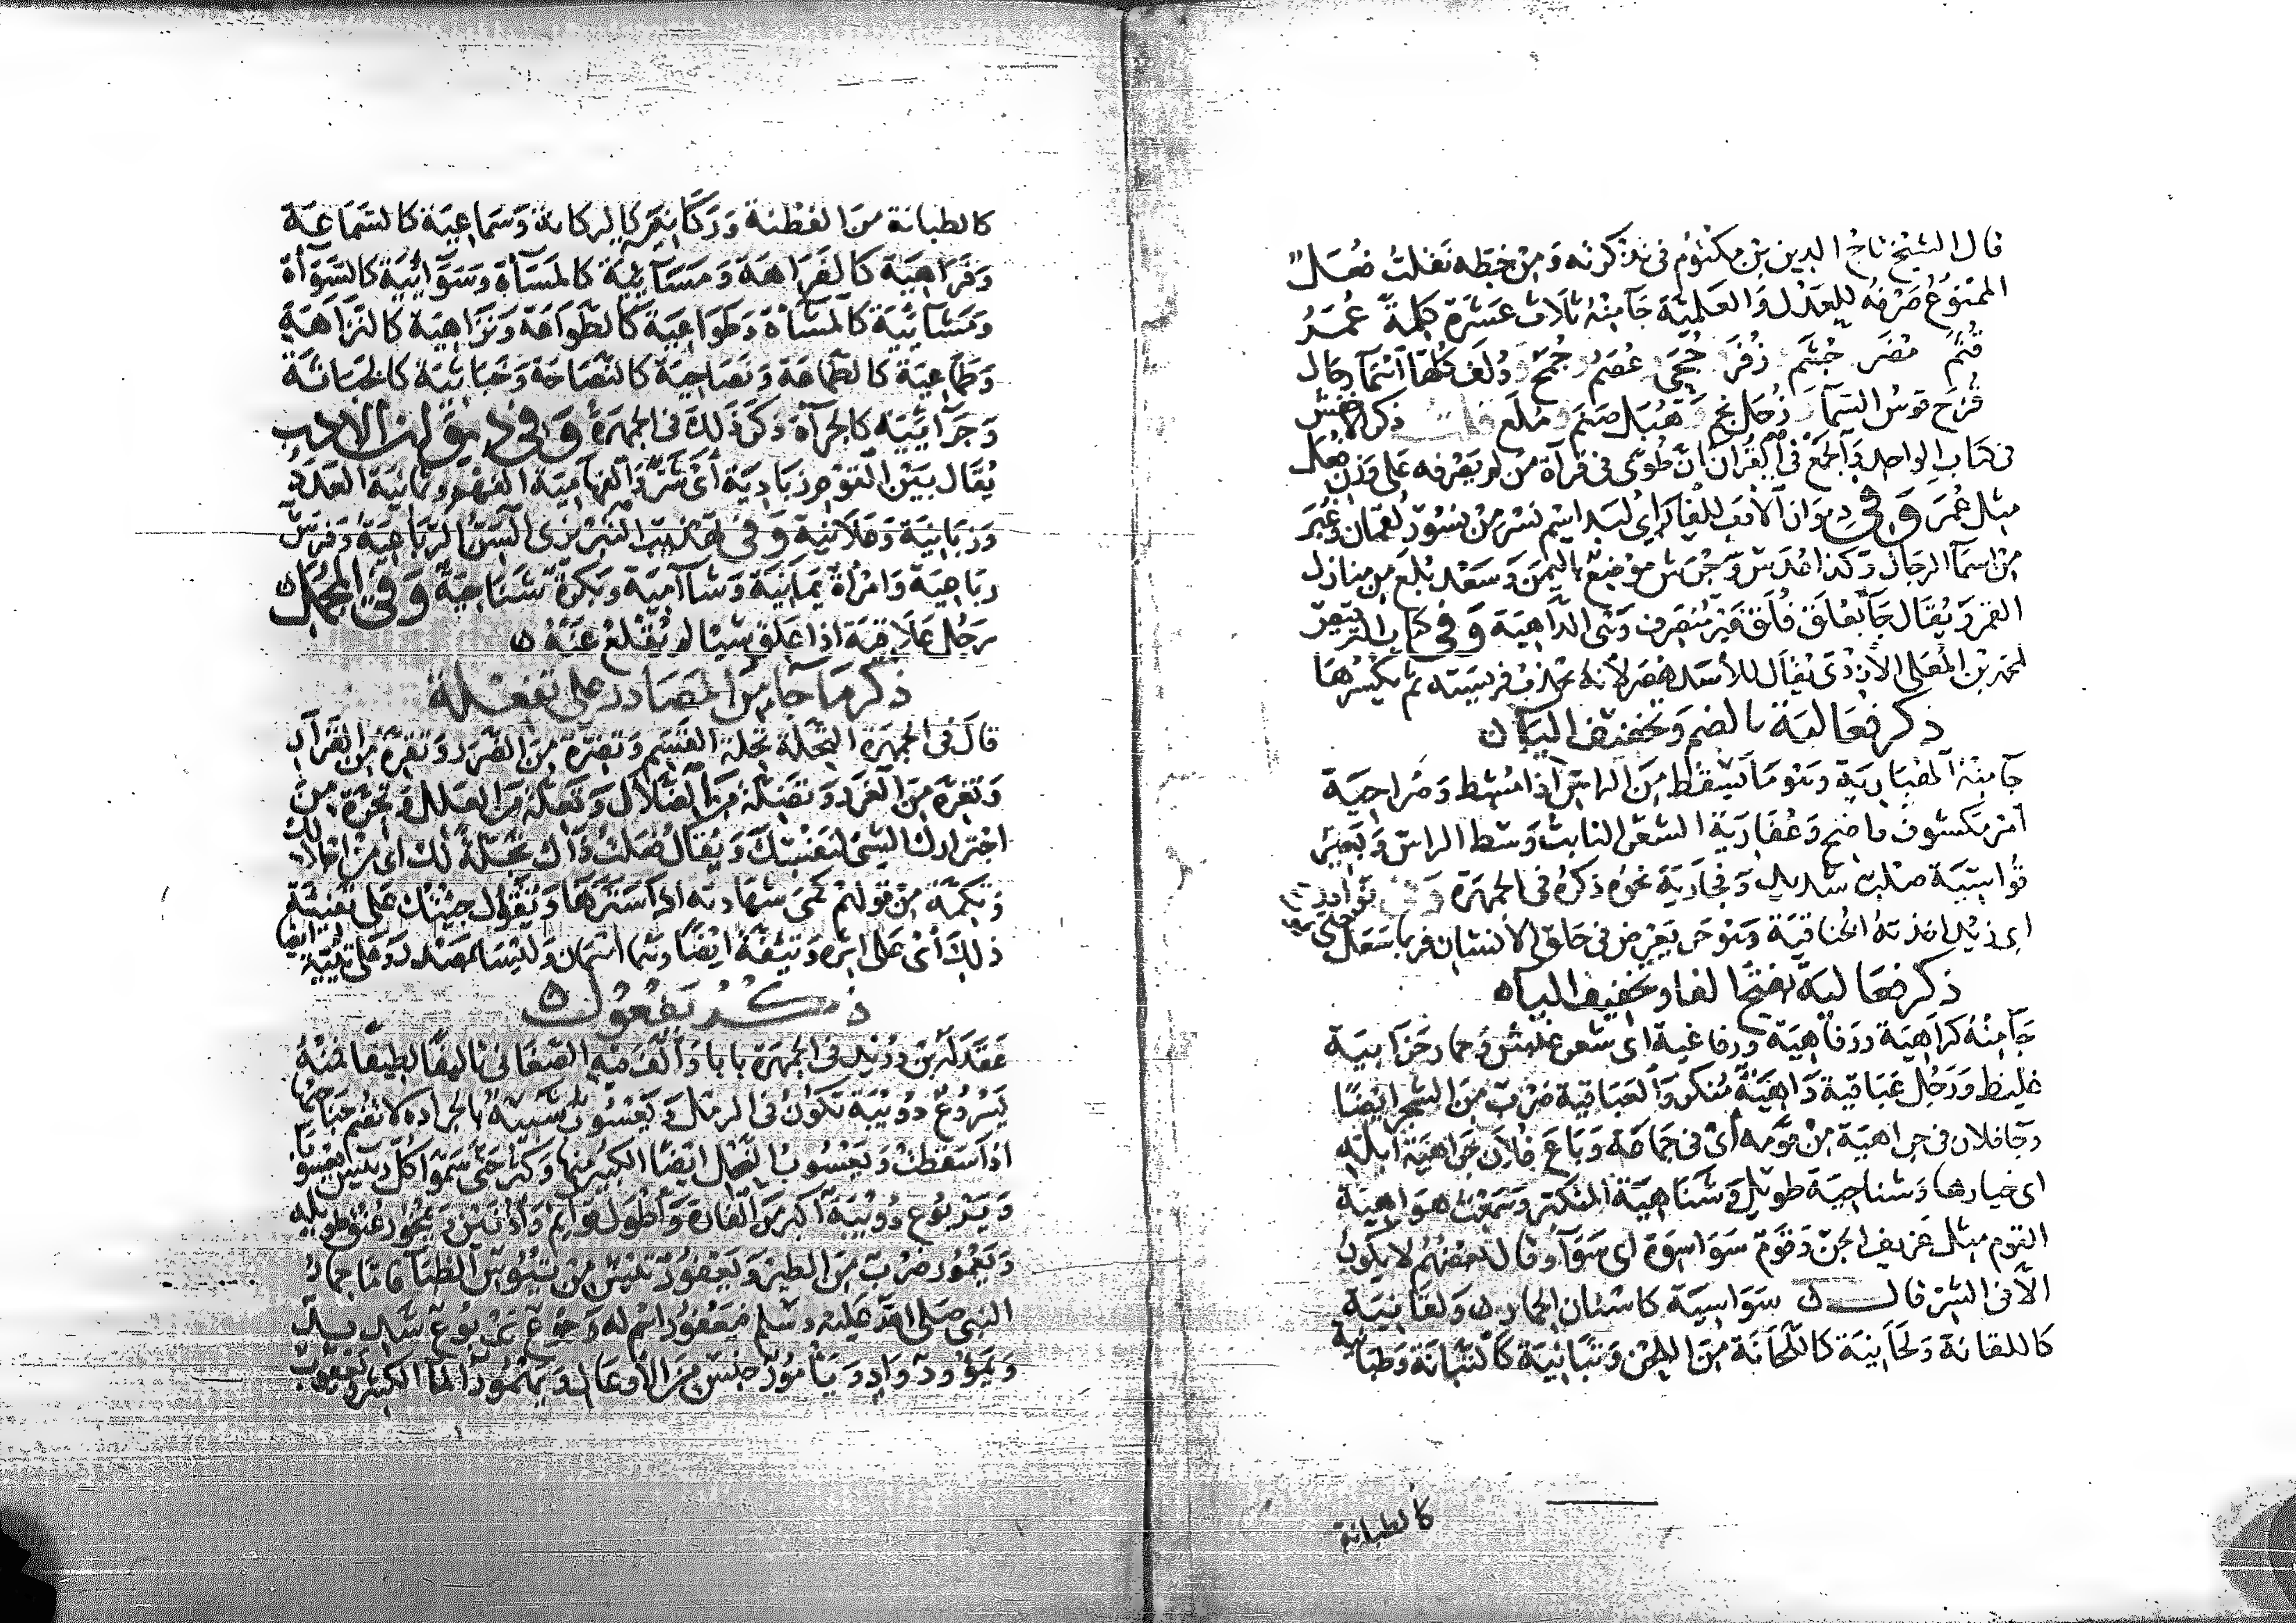 قال الشيخ تاج الدين بن مكتوم في تذكرته ومن خطه نقلت فعل
الممنوع صرفه للعدل والعلمية جآ منه ثلاث عشرة كلمة عمر
قثم مضر جشم زفر جحى عصم جمح دلف كلها اسمآ رجال
قزح قوس السمآ زحل نجم وهبل صنم وبلع قلت ذكر الاخفش
في كتاب الواحد والجمع في القرآن ان طوى في قرآة من لم يصرفه على وزن فعل
مثل عمر وفي ديوان الادب للفارابي لبد اسم نسر من نسور لقمان وغبر
من اسمآ الرجال وكذا قدس وجرش موضع باليمن وسعد بلع من منازل
القمر ويقال جآ بعلق فلق غير منصرف وهى الداهية وفي كتاب الترقيص
لمحمد بن المعلى الازدى يقال للاسد هصر لانه يجذب فريسته ثم يكسرها
ذكر فعالية بالضم وتخفيف اليآ ن
جآ منه الهبارية وهو ما يسقط من الراس اذا مشط وصراحية
امر مكشوف واضح وعفارية الشعر النابت وسط الراس وبعير
قراسية صلب شديد وقحارية نحوه ذكره في الجمهرة وفي نوادر
ابى زيد اخذته الخناقية وهو حر يعرض في حلق الانسان فربما سعل
ذكر فعالية بفتح الفا وتخفيف اليآ ه
جآ منه كراهية ورفاهية ورفاغية اى سعة عيش وحمار حزابية
غليظ ورجل عباقية داهية منكر والعباقية ضرب من الشجر ايضا
وجا فلان في جراهية من قومه اى في جماعة وباع فلان جراهية ابله
اى خيارها وشناحية طويل وشناهية المنكر وسمعت هواهية
القوم مثل عزيف الجن وقوم سواسوة اى سوآ وقال بعضهم لا يكون
الا في الشر قال ن سواسية كاسنان الحمار ن ولقانية
كاللقانة ولحانية كاللحانة من اللحن وتبانية كالتبانة وطبانية
كالطبانة
كالطبانة من الفطنة وركانية كالركانة وسماعية كالسماعة
وفراهية كالفراهة ومسآئية كالمسآة وسوآئية كالسوآة
ومشآئية كالمشآة وطواعية كالطواعة ونزاهية كالنزاهة
وطماعية كالطماعة ونصاحية كالنصاحة وخباثية كالخباثة
وجرآئية كالجرآة ذكر ذلك في الجمهرة وفي ديوان الادب
يقال بين القوم رباذية اى شر والفهامية الفهم وثمانية العدد
وزبانية وعلانية وفي تهذيب التبريزى السن الرباعية وفرس
رباعية وامراة يمانية وشآمية وبكرة شناحية وفي المجمل
رجل علاقية اذا علق شيئا لم يقلع عنه ه
ذكر ما جآ من المصادر على تفعلة
قال في الجمهرة التحلة تحلة القسم وتضرة من الضرر وتقرة من القرار
وتغرة من الغرر وتضلة من الضلال وتعلة من العلل وتجرة من
اجترارك الشى لنفسك ويقال فعلت ذاك تجلة لك اى من اجلالك
وتكمة من قولهم كمى شهادته اذا سترها ويقول جيتك على تفئة
ذلك اى على اثره وتئفة ايضا وهما اسمان وليسا بمصدر وعلى تئية ايضا
ذكر يفعول ه
عقد له بن دريد في الجمهرة بابا والف فيه الصغانى تاليفا لطيفا فمنه
يسروع دويبة تكون في الرمل ويعسوب شبيه بالجراده لا تضم جناحيها
اذا سقطت ويعسوب النحل ايضا الكبير منها وكثر حتى سموا كل رئيس يعسوبا
ويربوع دويبة اكبر من الفارة واطول قوايم واذنين ويمخور عنق طويله
ويعمور ضرب من الطير ويعفور تيس من تيوس الظبآ فاما حمار
النبى صلى الله عليه وسلم فيعفور اسم له وجوع يرقوع شديد
ويمؤود واد ويامور جنس من الاوعال ويمور المآ الكثير ويعقوب